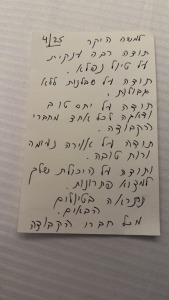 4/25
למשה היקר
תודה רבה ענקית
על טיול נפלא.
תודה על שבלנות ללא
גבולות.
תודה על יחס טוב
ודאגה לכל אחד מחברי
הקבוצה.
תודה על אוירה נעימה
ורוח טובה.
ותודה על היכולת שלך
למצוא פתרונות.
נתראה בטיולים
הבאים.
מכל חברי הקבוצה